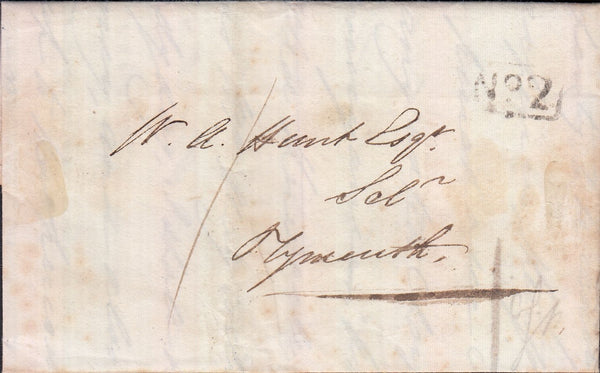 No. 2
W. A. Hunt Esqr.
Solr
Plymouth.